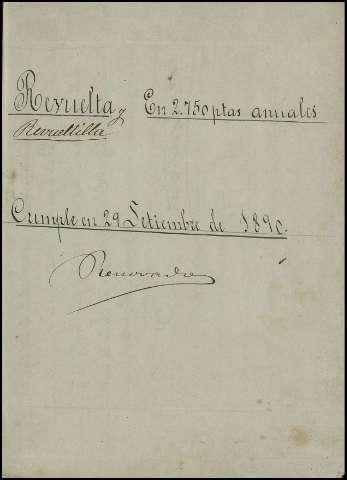 Revuelta y En 2.750 ptas anuales
Revueltilla
Cumple en 29 Setiembre de 1890.
Renovado